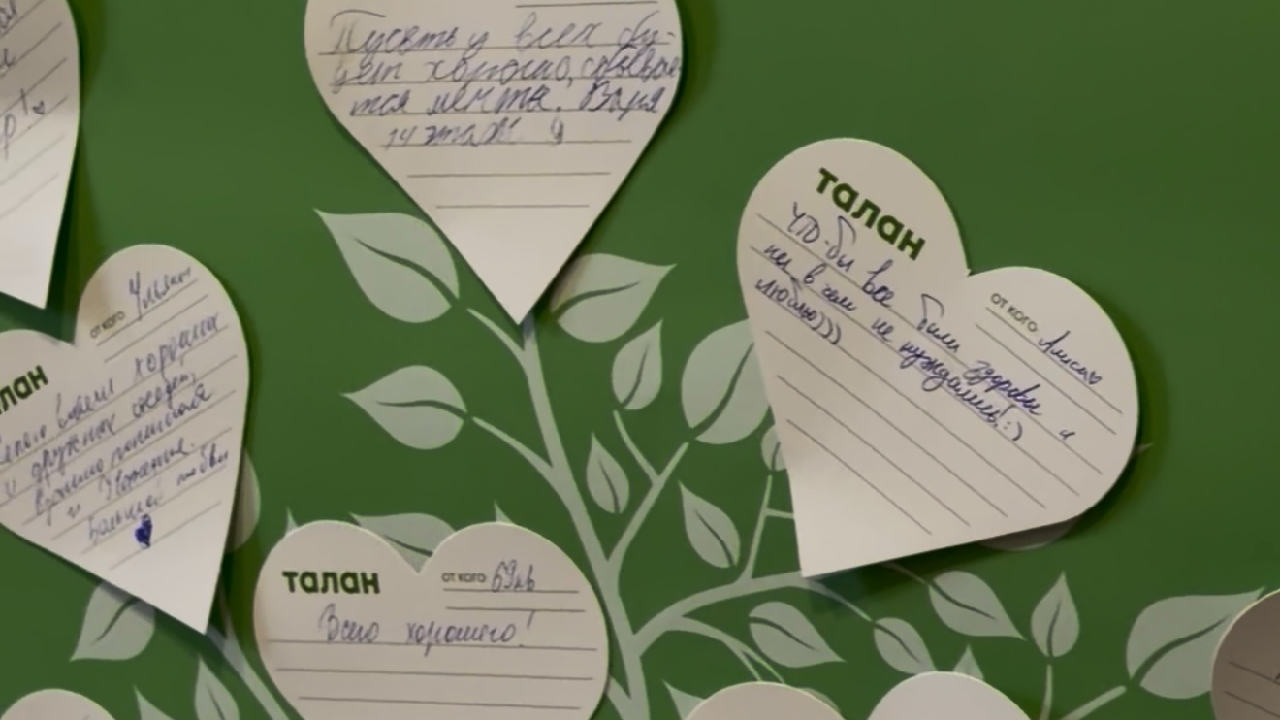 Пусть у всех бу-
дет хорошо, сбывае
тся мечты! Варя
14 этаж
талан
от кого Алиса
Что-бы все были здоровы и
ни в чем не нуждались! :)
Люблю)))
лан
от кого Ульяна
всем хороших
и дружных соседей,
взаимопонимания
и уважения.
Большой любви
талан
от кого 69кв
Всего хорошего!